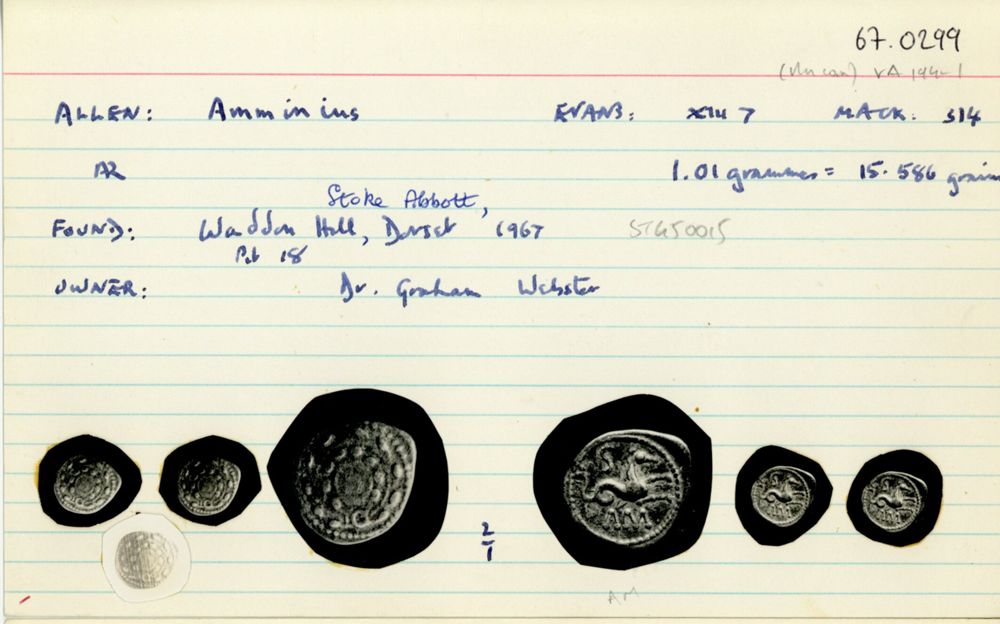 67.0299
(Uncan) VA 194-1
ALLEN: Amminius EVANS: XIII 7 MACK: 314
AR 1.01 grammes = 15.586 grain
Stoke Abbott,
FOUND: Waddon Hill, Dorset 1967 ST450015
Pit 18
OWNER: Dr. Graham Webster
2
1
AM
AM